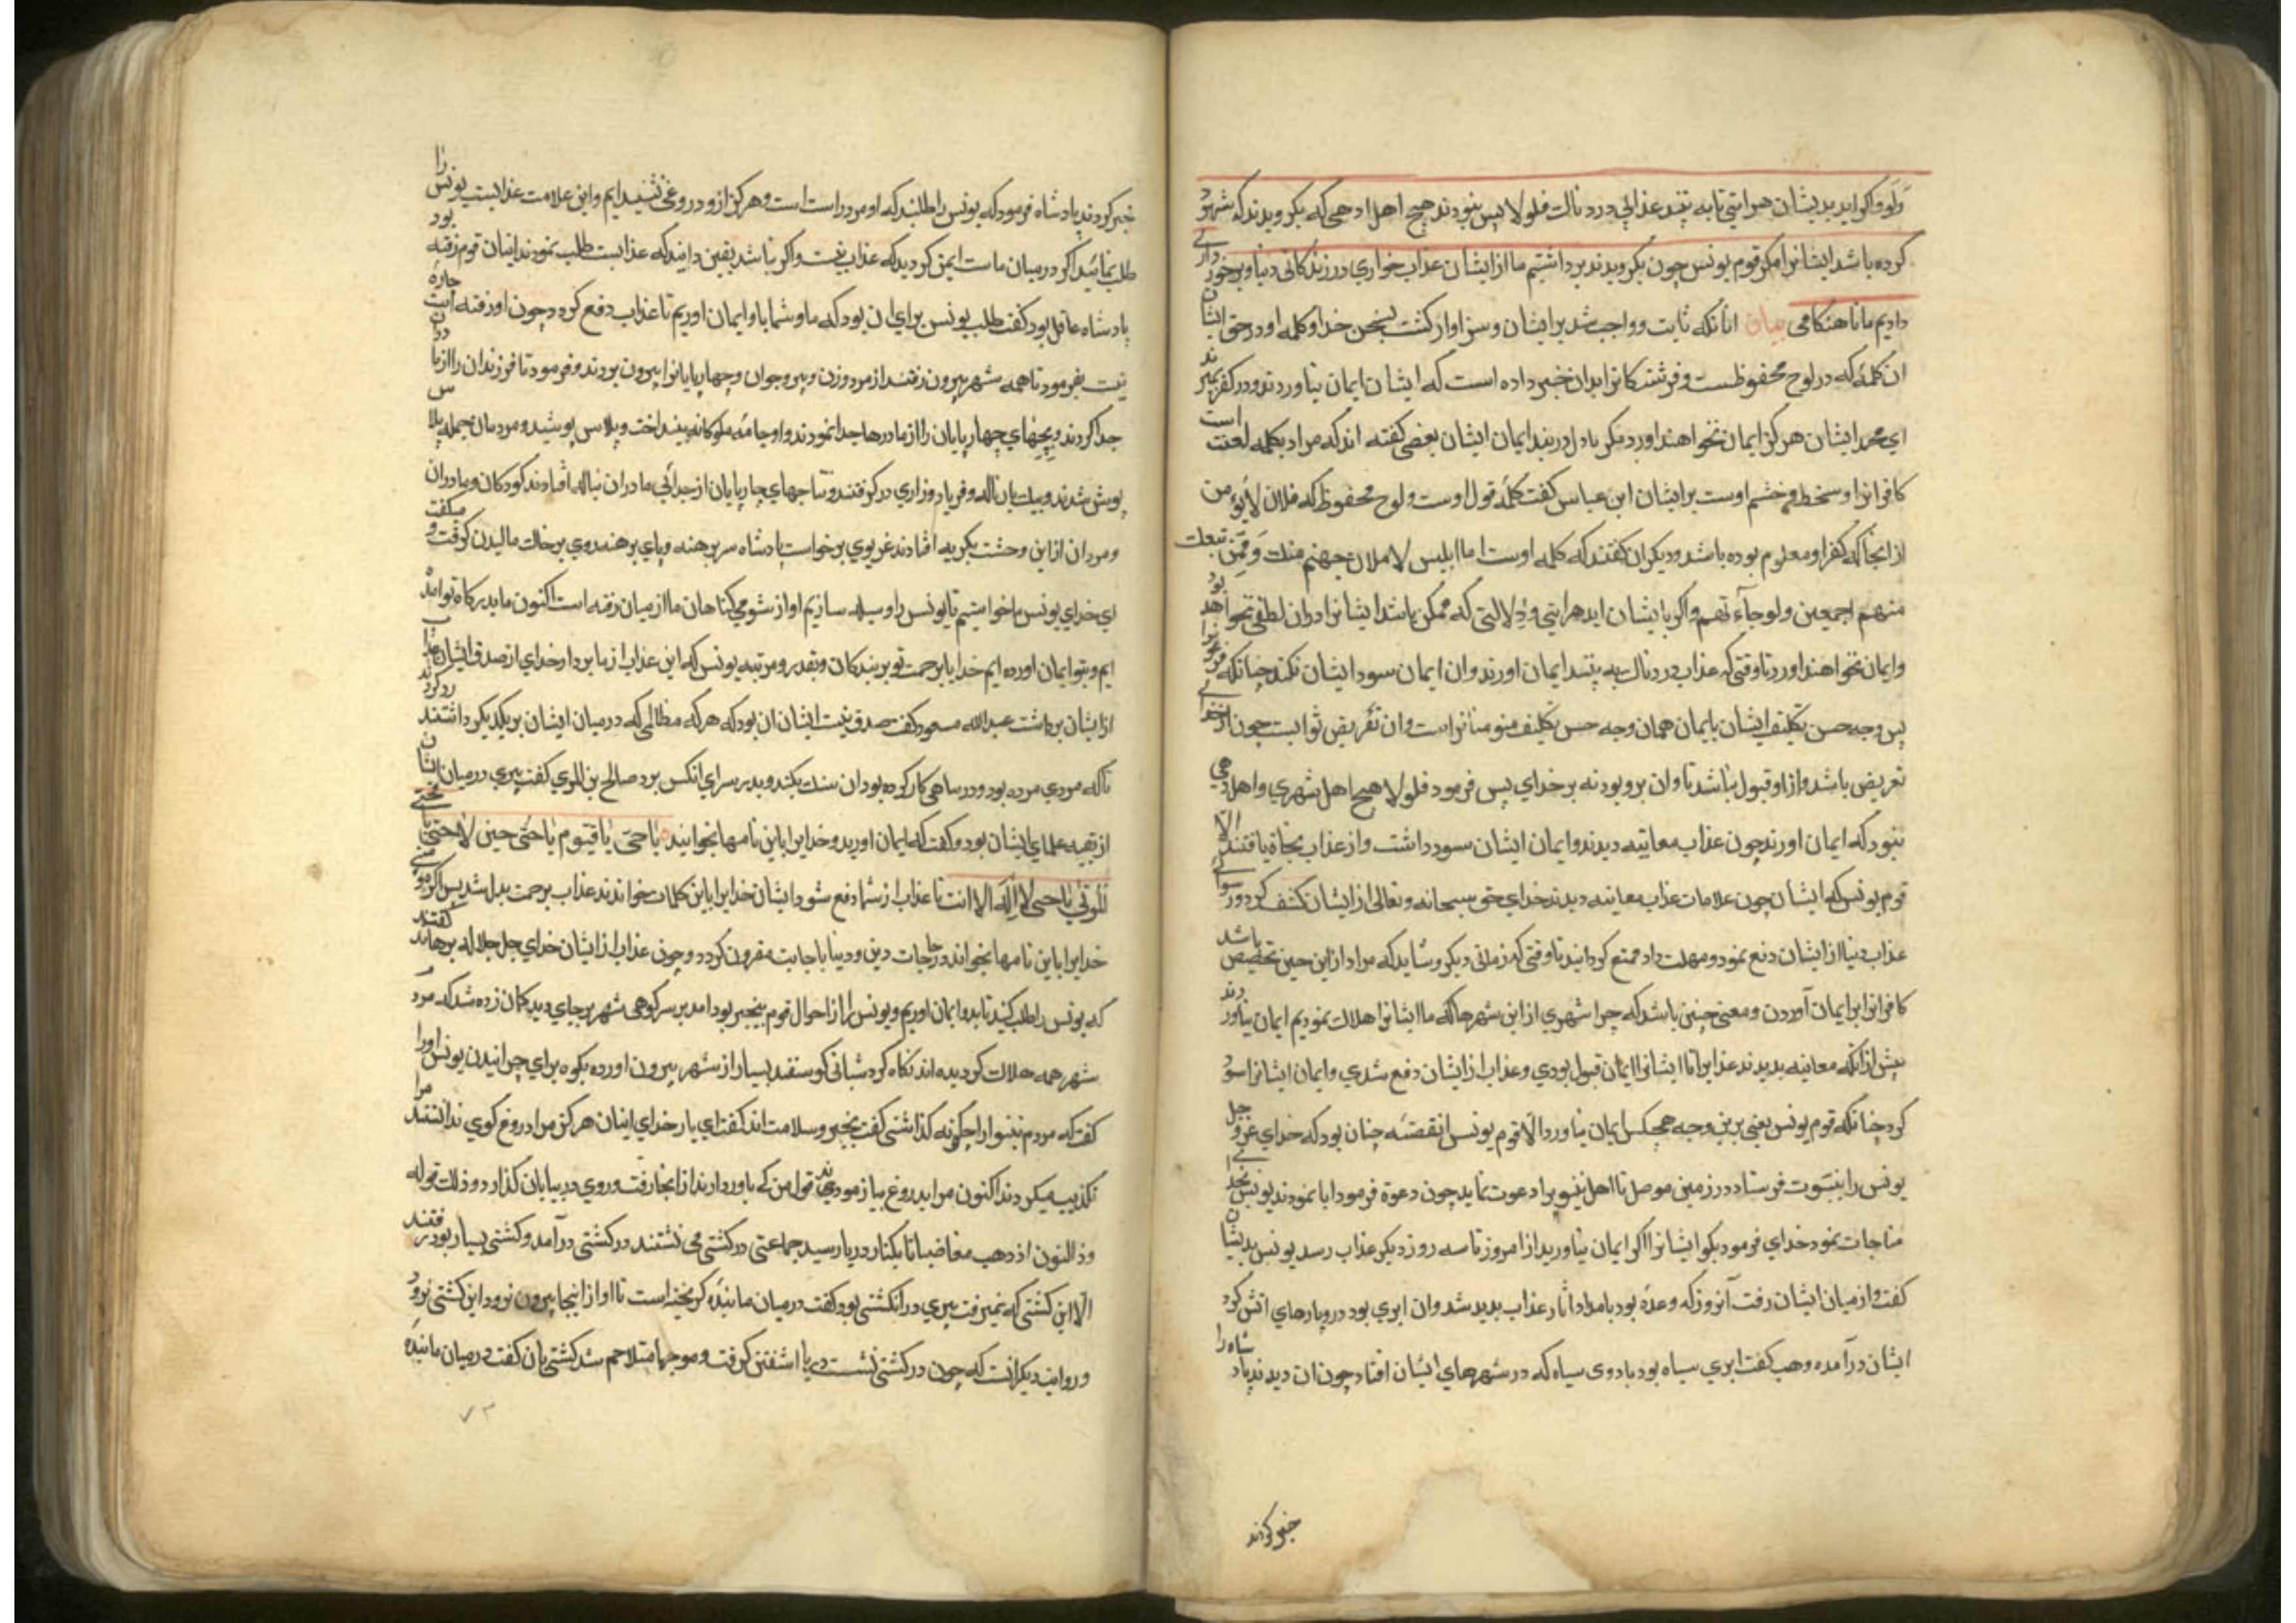 وَلَو و اكر ايد بديشان هر ايتي تا به بينند عذابي دردناك فلولا پس نبودند هيچ اهل ادهى كه بكرويدند كه
كرده باشد ايشانرا مكر قوم يونس چون بكرويدند برداشتيم ما از ايشان عذاب خواري در زندكاني دنيا و برخورداري
داديم ما تا هنكامى بيان انانكه ثابت و واجب شد بر ايشان و سزاوار كشت بسخن خدا و كلمه او در حق ايشان
ان كلمه كه در لوح محفوظست و فرشتكانرا بدان خبر داده است كه ايشان ايمان نياورند و در كفر ميرند
اي محمد ايشان هركز ايمان نخواهند اورد بعضى كفته اند كه مراد بكلمه لعنت است
كافرانرا و سخط و خشم اوست بر ايشان ابن عباس كفت كلمه قول اوست و لوح محفوظ كه فلان لا يؤمن
از انجا كه كفر او معلوم بوده باشد و ديكران كفتند كه كلمه اوست اما ابليس لاملان جهنم منك و ممن تبعك
منهم اجمعين ولو جاءتهم و اكر با ايشان ايد هر ايتي و دلالتى كه ممكن باشد ايشانرا دران لطفى نخواهد بود
و ايمان نخواهند اورد تا وقتى كه عذاب دردناك به بينند ايمان اورند و ان ايمان سود ايشان نكند چنانكه فرعونرا
پس وجه حسن تكليف ايشان بايمان همان وجه حسن تكليف مؤمنانراست و ان تعريض ثوابست چون از خداي
تعريض باشد و از او قبول نباشد تاوان برو بود نه بر خداي پس فرمود فلولا هيچ اهل شهري و اهل دهى
نبود كه ايمان اورند چون عذاب معاينه ديدند و ايمان ايشان سود داشت و از عذاب نجاة يافتند الا
قوم يونس كه ايشان چون علامات عذاب معاينه ديدند خداي حق سبحانه و تعالى از ايشان كشف كرد و رسواي
عذاب دنيا از ايشان دفع نمود و مهلت داد و متمتع كردانيد تا وقتى كه زمانى ديكر و شايد كه مراد از اين حين تخصيص باشد
كافرانرا بايمان آوردن و معنى چنين باشد كه چرا شهري از اين شهرها كه ما ايشانرا هلاك نموديم ايمان نياوردند
پيش از انكه معاينه بديدند عذابرا تا ايشانرا ايمان قبول بودي و عذاب از ايشان دفع شدي و ايمان ايشانرا سود
كرد چنانكه قوم يونس يعنى برين وجه هيچكس ايمان نياورد الا قوم يونس انقصه چنان بود كه خداي عز و جل
يونس را بنبوت فرستاد در زمين موصل تا اهل نينوى را دعوت نمايد چون دعوة فرمود ابا نمودند يونس بخداي
مناجات نمود خداي فرمود بكو ايشانرا اكر ايمان نياوريد از امروز تا سه روز ديكر عذاب رسد يونس بديشان
كفت و از ميان ايشان رفت آنروز كه وعده بود بامداد اثار عذاب پديد شد و ان ابري بود در و پارهاي اتش كرد
ايشان درآمده وهب كفت ابري سياه بود با دودى سياه كه در شهرهاي ايشان افتاد چون ان ديدند پادشاه را
خبر كردند
خبر كردند پادشاه فرمود كه يونس را طلبند كه او مرد راست است و هركز ازو دروغى نشنيدايم و اين علامت عذابست يونس را
طلب نمائيد اكر در ميان ماست ايمن كرديد كه عذاب نيست و اكر نباشد يقين دانيد كه عذابست طلب نمودند ايشان قوم رفته بود
پادشاه عاقل بود كفت طلب يونس براي ان بود كه ما و شما باو ايمان اوريم تا عذاب دفع كردد چون او رفته است چاره
نيست بفرمود تا همه شهر بيرون رفتند از مرد و زن و پير و جوان و چهارپايانرا بيرون بردند و فرمود تا فرزندان را از مادران
جدا كردند و بچهاي چهارپايان را از مادرها جدا نمودند و او جامه ملوكانه بينداخت و پلاس پوشيد و مردمان جمله پلاس
پوش شدند و بيك بار ناله و فرياد و زاري در كرفتند و نتاجهاي چارپايان از جدائي مادران بناله افتادند كودكان و مادران
و مردان از اين وحشت بكريه افتادند غريوي برخواست پادشاه سر برهنه و پاي برهنه روي بر خاك ماليدن كرفت و ميكفت
اي خداي يونس ما خواستيم تا يونس را وسيله سازيم او از شومي كناهان ما از ميان رفته است اكنون ما بدركاه تو امده
ايم و بتو ايمان اورده ايم خدايا برحمت تو بر بندكان و بقدر و مرتبه يونس كه اين عذاب از ما بردار خداي از صدق ايشان عذاب
از ايشان برداشت عبدالله مسعود كفت صدق نيت ايشان ان بود كه هر كه مظالمى كه در ميان ايشان بر يكديكر داشتند رد كردند
تا كه مردي مرده بود و در ساهى كار كرده بود ان سنك بكند و بدر سراي انكس برد صالح بن المري كفت پيري در ميان ايشان
از بقيه علماي ايشان بود و كفت كه ايمان اوريد و خدايرا باين نامها بخوانيد يا حى يا قيوم يا حى حين لا حى يا محيى
الموتى يا حى لا اله الا انت تا عذاب از شما دفع شود ايشان خدايرا باين كلمات خواندند عذاب برحمت بدل شد پس اكر مؤمنى
خدايرا باين نامها بخواند در حاجات دين و دنيا باجابت مقرون كردد و چون عذاب از ايشان خداي جل جلاله برهاند كفتند
كه يونس را طلب كنيد تا بدو ايمان اوريم و يونس را از احوال قوم بيخبر بود امد بر سر كوهى شهر بر جاي ديد كمان زده شد كه مردم
شهر همه هلاك كرديده اند نكاه كرد شبانى كوسفند بسيار از شهر بيرون اورده بكوه براي چرانيدن يونس اورا
كفت كه مردم نينوا را چكونه كذاشتى كفت بخير و سلامت اند كفت اي بار خداي اينان هركز مرا دروغ كوي ندانستند مرا
تكذيب ميكردند اكنون مرا بدروغ بيازمودند قول من كي باور دارند از انجا رفت و روي در بيابان كذارد و ذلك قوله
و ذا النون اذ ذهب مغاضبا تا بكنار دريا رسيد جماعتى در كشتى مى نشتند در كشتى درآمد و كشتى بسيار بود
الا اين كشتى كه نميرفت پيري در انكشتى بود كفت در ميان ما بنده كريخته است تا او از اينجا بيرون نرود اين كشتى نرود
و روايت ديكر انست كه چون در كشتى نشست دريا اشفتن كرفت و موجها متلاحم شد كشتى بان كفت در ميان ما بنده
٧٣